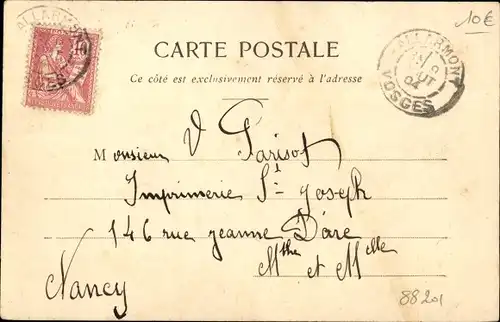 ALLARMONT
VOSGES
10€
ALLARMONT
OUT
04
VOSGES
CARTE POSTALE
Ce côté est exclusivement réservé à l'adresse
Monsieur V Parisot
Imprimerie St-Joseph
146 rue Jeanne D'arc
Mthe et Mlle
Nancy
88201